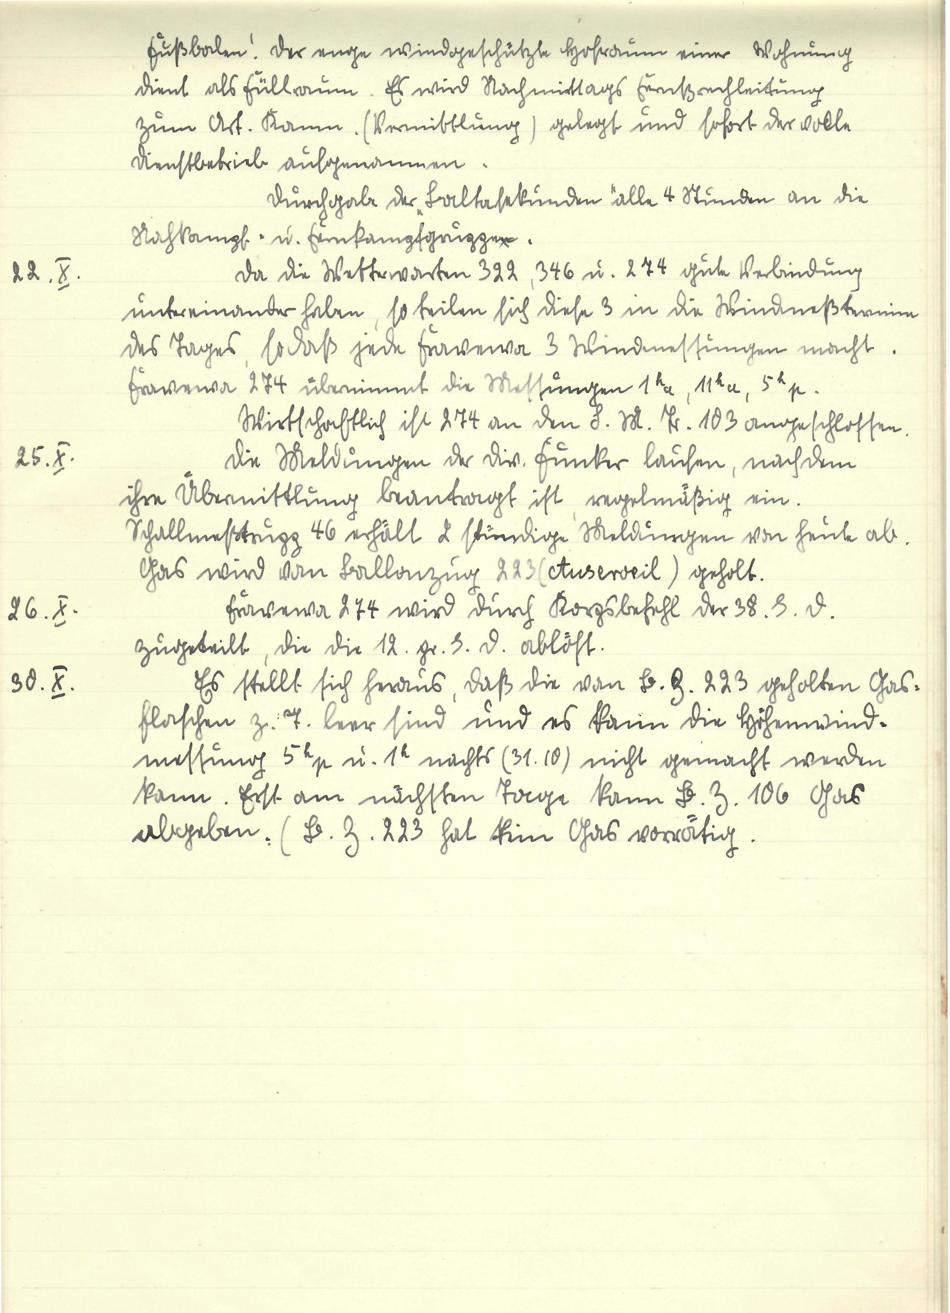 Fußboden! Der enge windgeschützte Hofraum einer Wohnung
dient als Füllraum. Es wird Nachmittags Fernsprechleitung
zum Art. Kom. (Vermittlung) gelegt und sofort der volle
Dienstbetrieb aufgenommen.
Durchgabe der "Baltasekunden" alle 4 Stunden an die
Nahkampf- u. Fernkampfgruppen.
22.X. Da die Wetterwarten 322, 346 u. 274 gute Verbindung
untereinander haben, so teilen sich diese 3 in die Windmeßtermine
des Tages, sodaß jede Frawewa 3 Windmessungen macht.
Frawewa 274 übernimmt die Messungen 1ha, 11ha, 5hp.
Wirtschaftlich ist 274 an den S. M. Tr. 103 angeschlossen.
25.X. Die Meldungen der Div. Funker laufen, nachdem
ihre Übermittlung beantragt ist, regelmäßig ein.
Schallmeßtrupp 46 erhält 2 stündige Meldungen von heute ab.
Gas wird von Ballonzug 223 (Anseroeil) geholt.
26.X. Frawewa 274 wird durch Korpsbefehl der 38. I. D.
zugeteilt, die die 12. I. D. ablöst.
30.X. Es stellt sich heraus, daß die von B. Z. 223 geholten Gas-
flaschen z. T. leer sind und es kann die Höhenwind-
messung 5hp u. 1h nachts (31.10) nicht gemacht werden
kann. Erst am nächsten Tage kann B. Z. 106 Gas
abgeben. (B. Z. 223 hat kein Gas vorrätig.